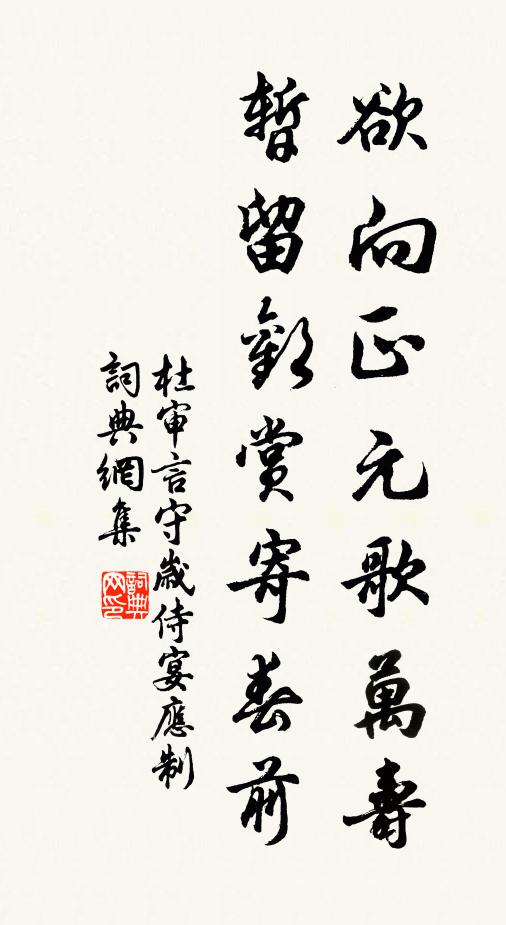 欲向正元歌萬壽
暫留歡賞寄春前
杜审言守歲侍宴應制
詞典網集
詞典网印